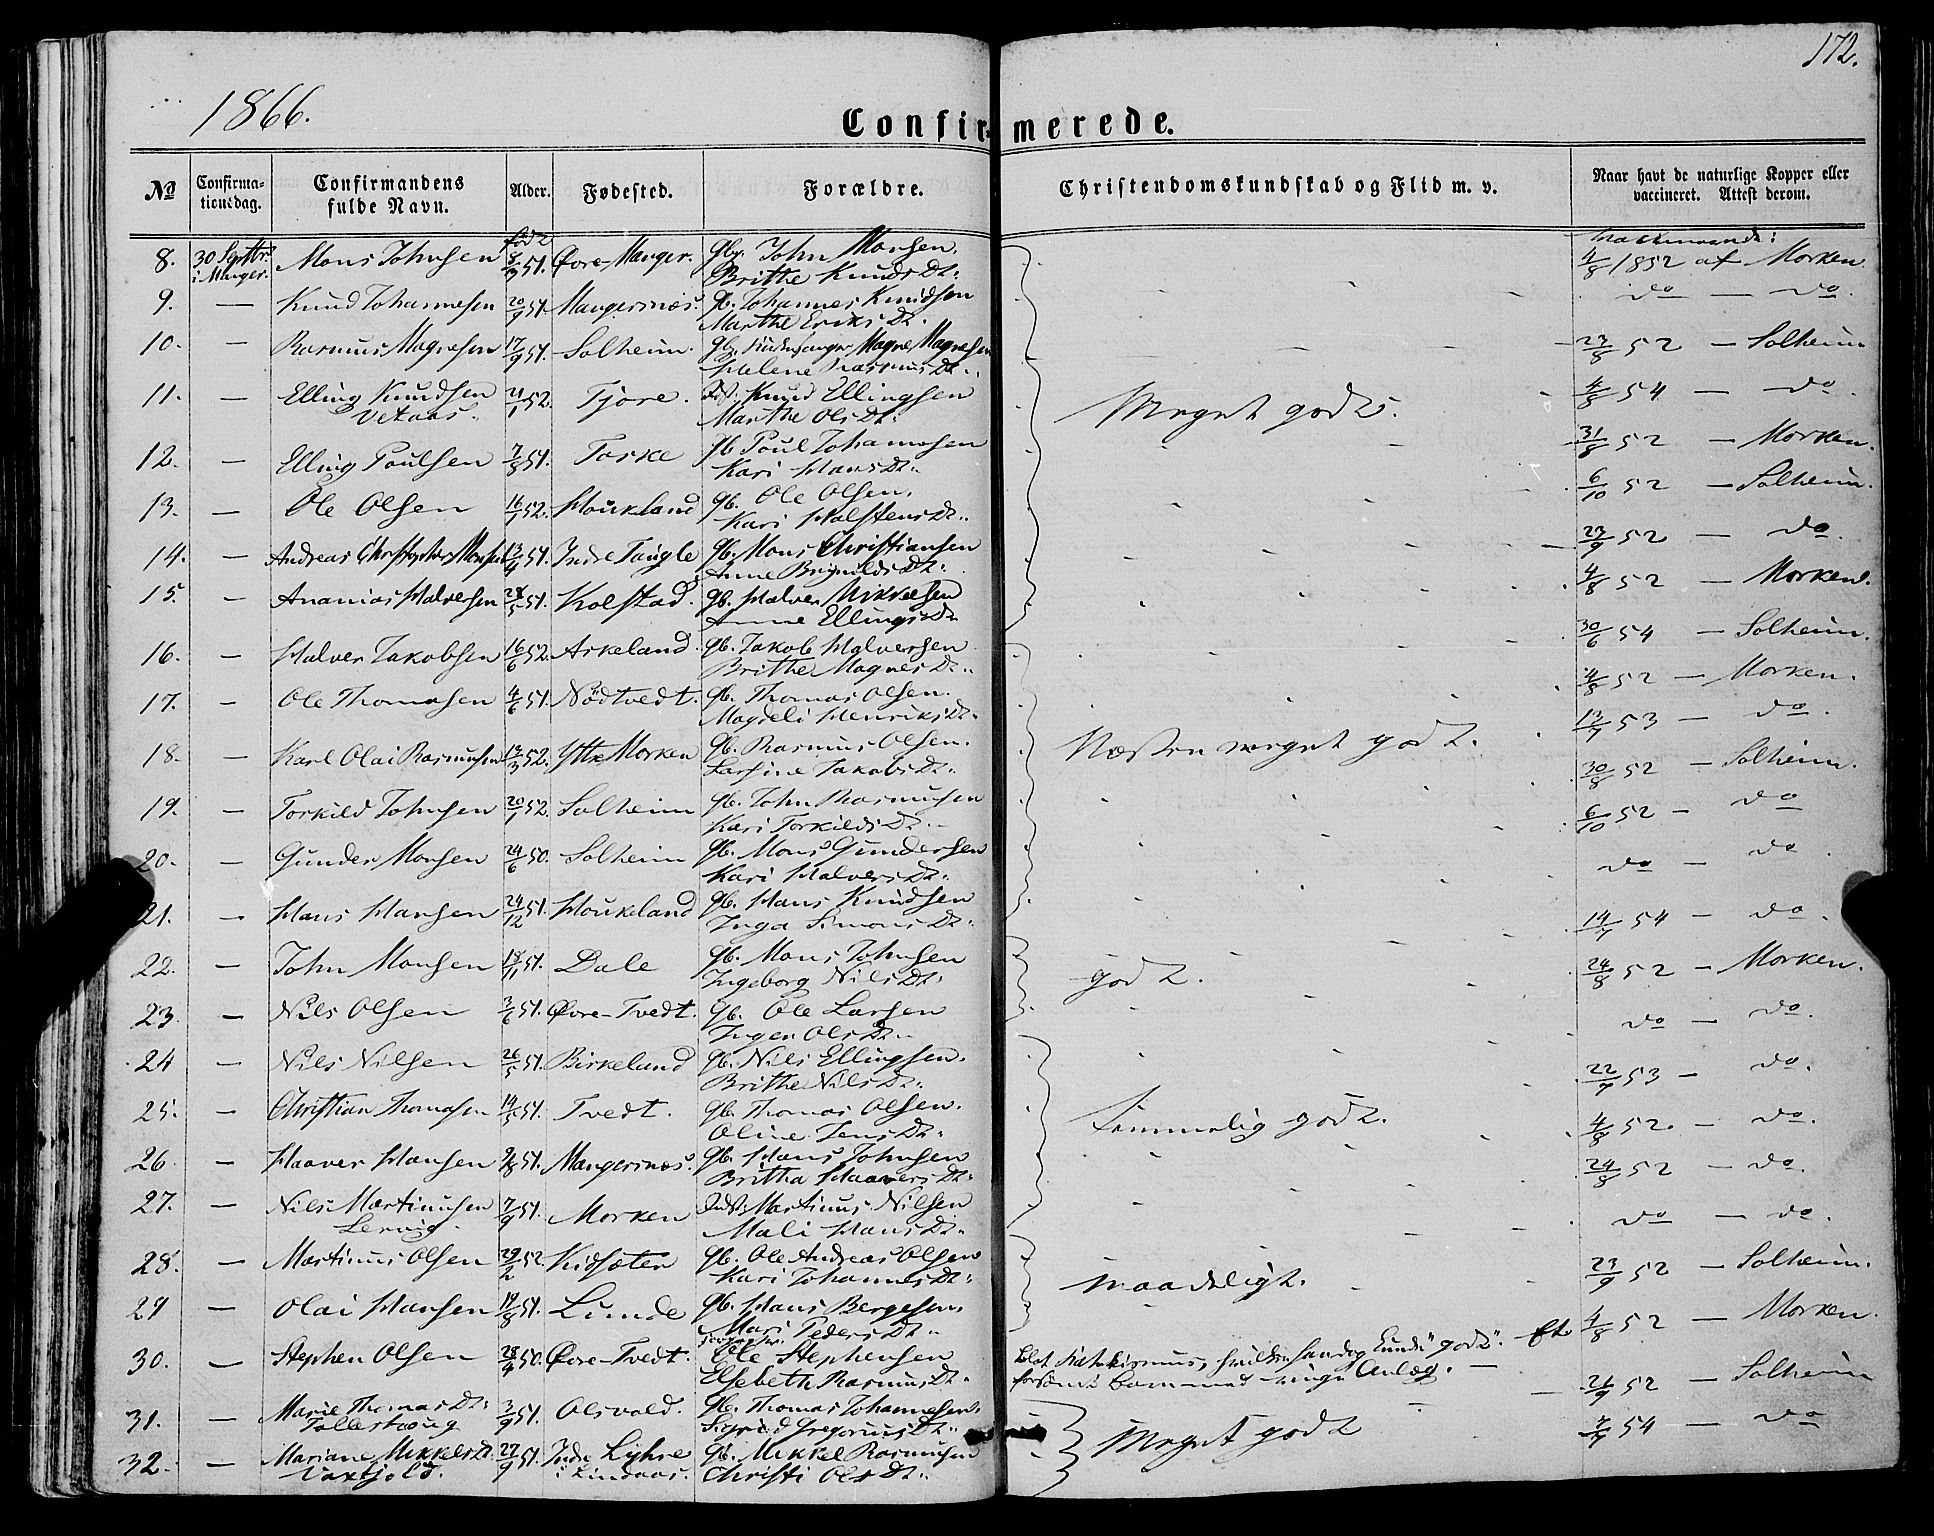 172.
1866.
Confirmerede.
No Confirmationsdag. Confirmandens fulde Navn. Alder. Fødested. Forældre. Christendomskundskab og Flid m. v. Naar havt de naturlige Kopper eller vaccineret. Attest derom.
født
8. 30 Septbr. i Manger. Mons Johnsen 8/9 51. Øvre-Manger. Gbr. John Monsen. Brithe Knuds Dt: 4/8 1852 af Morken.
9. — Knud Johannesen 20/9 51. Mangernæs. Gb. Johannes Knudsen Marthe Eriks Dt. do — do.
10. — Rasmus Magnesen 17/9 51. Solheim. Gb. Kirkesanger Magne Magnesen Helene Rasmus Dt: 23/8 52 — Solheim
11. — Elling Knudsen Vetaas. 21/1 52. Tjore. Knud Ellingsen Marthe Ols Dt: Meget godt. 4/8 54 — do.
12. — Elling Poulsen 7/8 51. Toske Gb Poul Johannesen Kari Hans Dt: 31/8 52 — Morken.
13. — Ole Olsen 16/1 52. Houkeland Gb. Ole Olsen. Kari Halstens Dt: 6/10 52 — Solheim.
14. — Andreas Christopher Monsen 13/4 51. Indre Taugle Gb. Mons Christiansen Anne Brynilds Dt: 23/9 52 — do.
15. — Ananias Halversen 28/5 51. Kolstad. Gb. Halver Mikkelsen Anne Ellings Dt 4/8 52 — Morken.
16. — Halver Jakobsen 16/6 52. Askeland. Gb. Jakob Halversen Brithe Magnes Dt: 30/6 54 — Solheim.
17. — Ole Thomasen 4/6 51. Nødtvedt. Gb. Thomas Olsen. Magdeli Henriks Dt. 4/8 52 — Morken.
18. — Karl Olai Rasmusen 13/3 52. Ytre Morken Gb. Rasmus Olsen. Larsine Jakobs Dt: Næsten meget godt. 13/7 53 — do.
19. — Torkild Johnsen 20/1 52. Solheim Gb. John Rasmusen Kari Torkilds Dt 30/8 52 — Solheim.
20. — Gunder Monsen 24/6 50. Solheim Gb. Mons Gundersen Kari Halvers Dt: 6/10 52 — do
21. — Hans Hansen 24/12 51. Houkeland Gb. Hans Knudsen Inga Simons Dt: do — do.
22. — John Monsen 18/11 51. Dale Gb. Mons Johnsen Ingeborg Nils Dt: godt. 14/7 54 — do.
23. — Nils Olsen 3/6 51. Øvre-Tvedt. Gb. Ole Larsen Inger Ols Dt. 24/8 52 — Morken.
24 — Nils Nilsen 26/5 51. Birkeland Gb. Nils Ellingsen. Brithe Nils Dt: do — do.
25. — Christian Thomasen 14/5 51. Tvedt. Gb. Thomas Olsen. Oline Jens Dt: temmelig godt. 22/9 53 — do.
26. — Haaver Hansen 9/8 51. Mangernæs. Gb. Hans Johnsen Britha Haavers Dt: 4/8 52. — do.
27. — Nils Martinusen Lervig. 7/9 51. Morken Martinus Nilsen Mali Hans Dt: 24/8 52 — do.
do — do.
28. — Martinus Olsen 29/2 52. Kidsæter Gb. Ole Andreas Olsen Kari Johannes Dt: maadeligt. 23/9 52 — Solheim.
29 — Olai Hansen 19/8 51. Lunde Gb. Hans Bergesen. Mari Peders Dt: 4/8 52 — Morken.
30. — Stephen Olsen 28/4 50. Øvre-Tvedt. Ole Stephensen Elsebeth Rasmus Dt. Blot Katekismus, hvilken han dog kunde "godt". Et forsømt Barn med ringe Anlæg. — 21/9 52 — Solheim
31. — Marie Thomas Dt: 3/9 51. Olsvold. Gb. Thomas Johannesen. Sigrid Gregorius Dt: Meget godt 54 — do
32. — Mariane Mikkels Dt. 27/9 51. Indre Lyhre i Lindaas. Gb. Mikkel Rasmusen Christi Ols Dt: